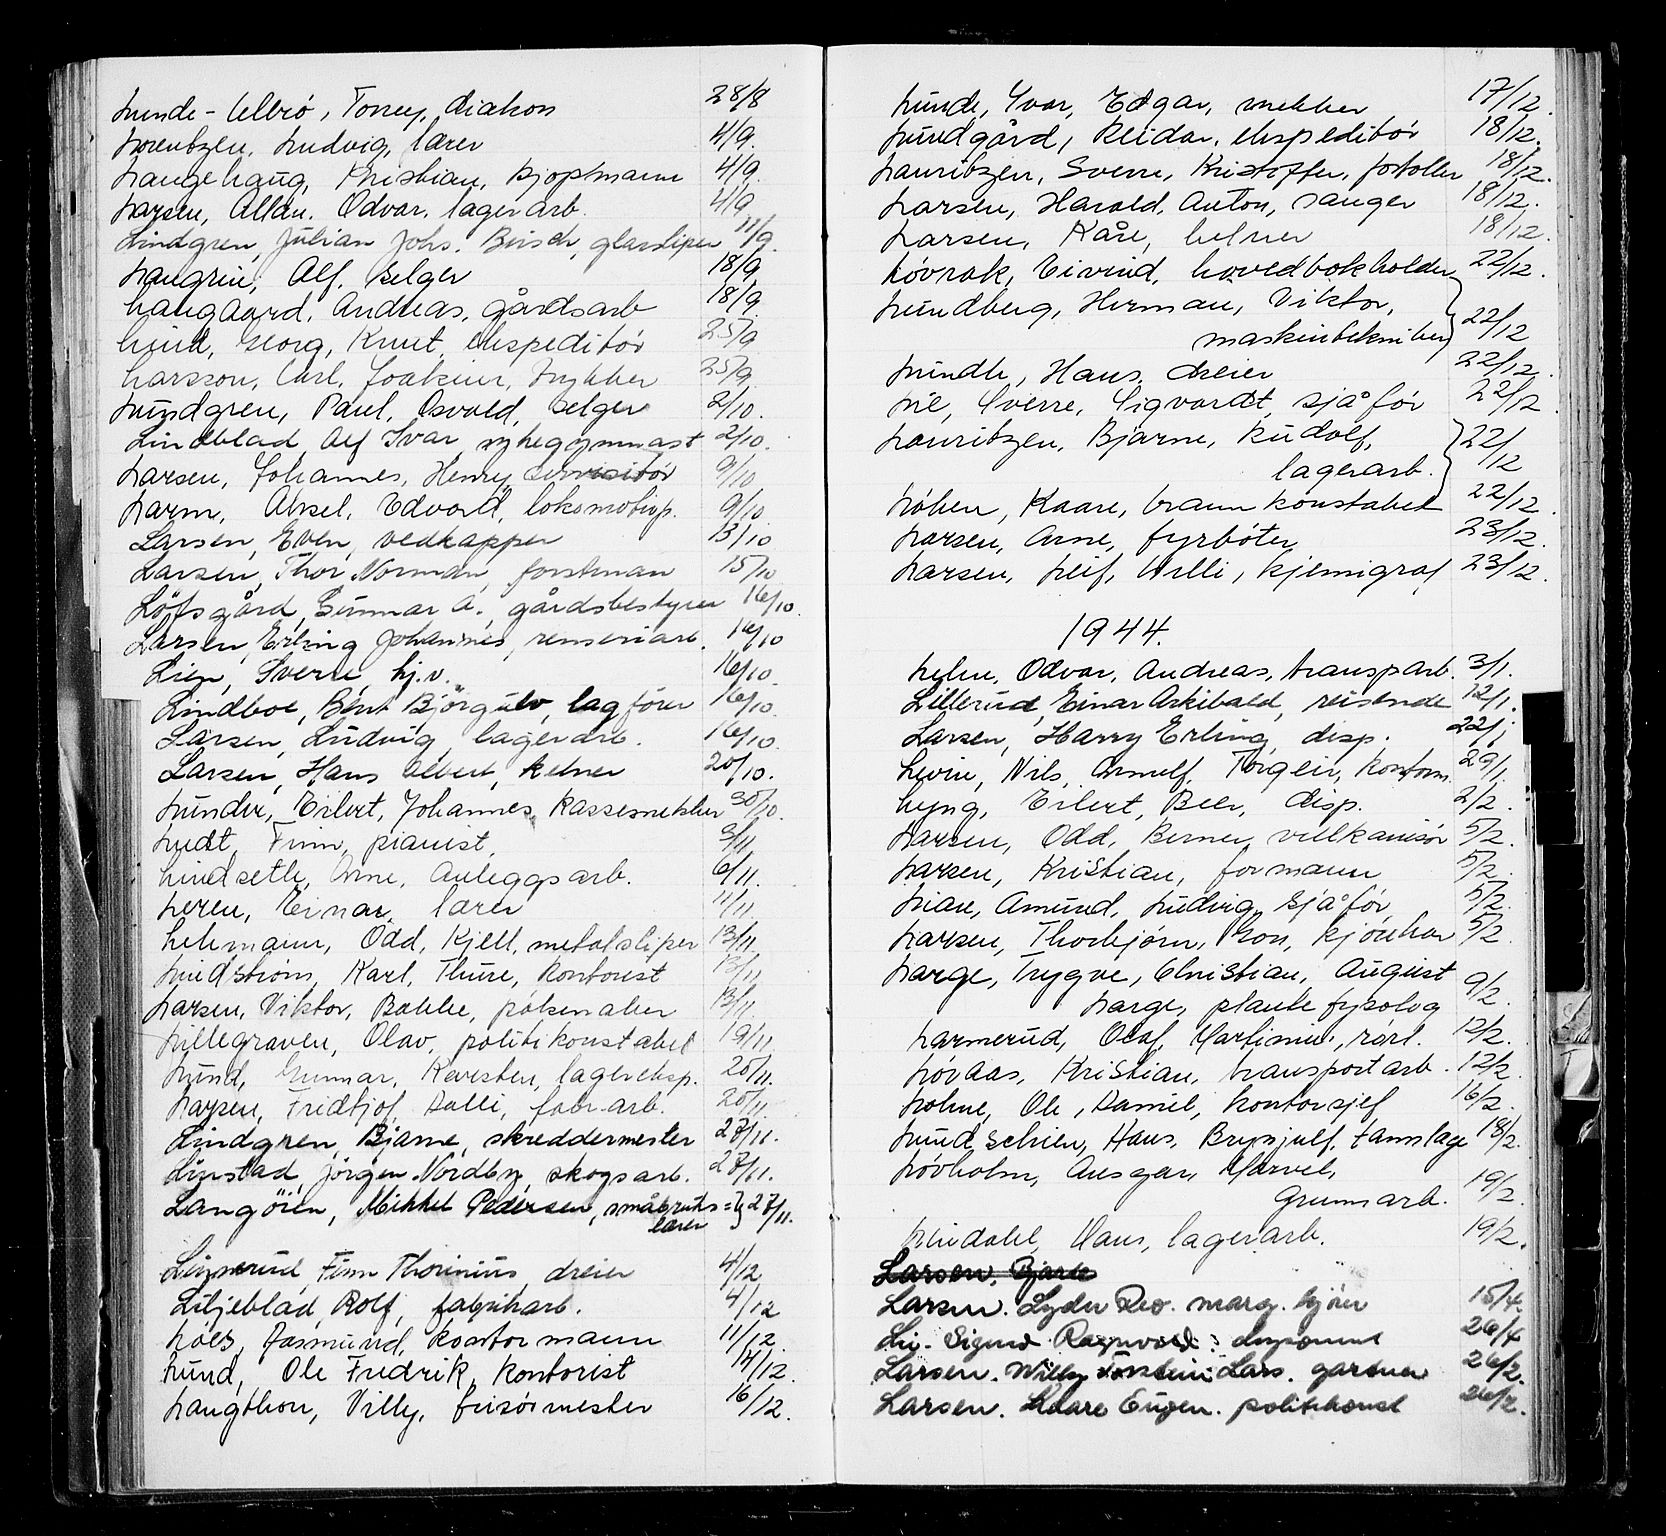 Lunde - Ulbrö, Torrey, diakon 28/8
Lorentzen, Ludvig, lærer 4/9.
Langehaug, Christian, kjøpmann 4/9.
Larsen, Allan. Odvar. lagerarb. 4/9
Lindgren, Julian Johs. glassliper 11/9.
Alf. selger 18/9
Langaard. Andreas, gårdsarb 18/9.
Lund, Georg, Knut, ekspeditör 25/9
Larsson, Carl, Joakim, trykker 25/9.
Lundgren, Paul, Osvald, selger 2/10.
Lindblad, Alf Ivar, sykegymnast 2/10.
Larsen, Johannes, Henry, servisitör 9/10
Larm, Aksel, Edvard, lokomotivp. 9/10.
Larsen, Even, vedkapper 13/10
Larsen, Thor Norman, forstman 15/10
Löfsgård, Gunnar A., gårdsbestyrer 16/10.
Larsen, Erling Johannes, renseriarb. 16/10
Lien, Sverre, hj.v. 16/10.
Lindboe, Bernt Björgulv, lagförer 16/10.
Larsen, Ludvig, lagerarb. 16/10.
Larsen, Hans Albert, kelner 20/10.
Lunder, Eilert, Johannes, kassesnekker 30/10.
Ludt, Finn, pianist.
Lindseth, Arne, Anleggsarb. 6/11.
Leren, Einar, lærer 11/11.
Lehmann, Odd, Kjell, metalsliper 13/11.
Lindström, Karl, Thure, kontorist 13/11
Larsen, Viktor, Bakke, pølsemaker 13/11.
Lillegraven, Olav, politikonstabel 19/11
Lund, Gunnar, Karsten, lagereksp. 20/11.
Larsen, Fridtjof, Dalli, fabr.arb. 20/11.
Lindgren, Bjarne, skreddermester 27/11.
Linstad, Jörgen Nordby, skogsarb. 27/11.
Langöien, Mikkel Pedersen, småbruks= 27/11.
lærer
Finn Thorinius, dreier 4/12
Liljeblad, Rolf, fabrikarb. 4/12
Loes, Jasmund, kontormann 11/12.
Lund, Ole Fredrik, kontorist 14/12.
Langthon, Villy, frisörmester 16/12.
Lunde, Ivar, Edgar, snekker 17/12.
Lundgård, Reidar, ekspeditör 18/12.
Lauritzen, Sverre, Kristoffer. 18/12.
Larsen, Harald, Anton, sanger 18/12.
Larsen, Kåre, kelner 18/12.
Lövrak, Eivind, hovedbokholder 22/12.
Lundberg, Herman, Viktor,
maskintekniker 22/12
Lundh, Hans, dreier 22/12.
Lie, Sverre, Sigvardt, sjåför 22/12
Lauritzen, Bjarne, Rudolf,
lagerarb. 22/12
Löken, Kaare, brannkonstabel 22/12.
Larsen, Arne, fyrböter 23/12.
Larsen, Leif, Willi, kjemigraf 23/12.
1944.
Lehn, Odvar, Andreas, transparb. 3/1.
Lillerud, Einar Arkibald, reisende 12/1.
Larsen, Harry Erling, disp. 22/1
Levin, Nils, Arnulf, Torgeir, kontorm. 29/1.
Lyng, Eilert, Beer, disp. 2/2.
Larsen, Odd, Berner, vulkanisör 5/2.
Larsen, Kristian, formann 5/2.
Lian, Amund, Ludvig, sjåför 5/2.
Larsen, Thorbjörn, 5/2.
Large, Trygve, Christian, August
Large, plantefysolog 9/2.
Larmerud, Olaf, Martinius, rörl. 12/2.
Lövaas, Kristian, transportarb. 12/2.
Lohne, Ole, Daniel, kontorsjef 16/2.
Lundschien, Hans, Brynjulf, tannlæge 18/2.
Lövholm, Ansgar, Marvel,
Grunnarb. 19/2.
Lindahl, Hans, lagerarb. 19/2.
Larsen, Bjarte
Larsen. Lyder Reo. marg. kjörer 15/4.
Li. Sigurd Ragnvald. 26/4
Larsen. Willy Torstein Lars. gartner 26/2.
Larsen. Kaare Eugen. politikonst 26/2.